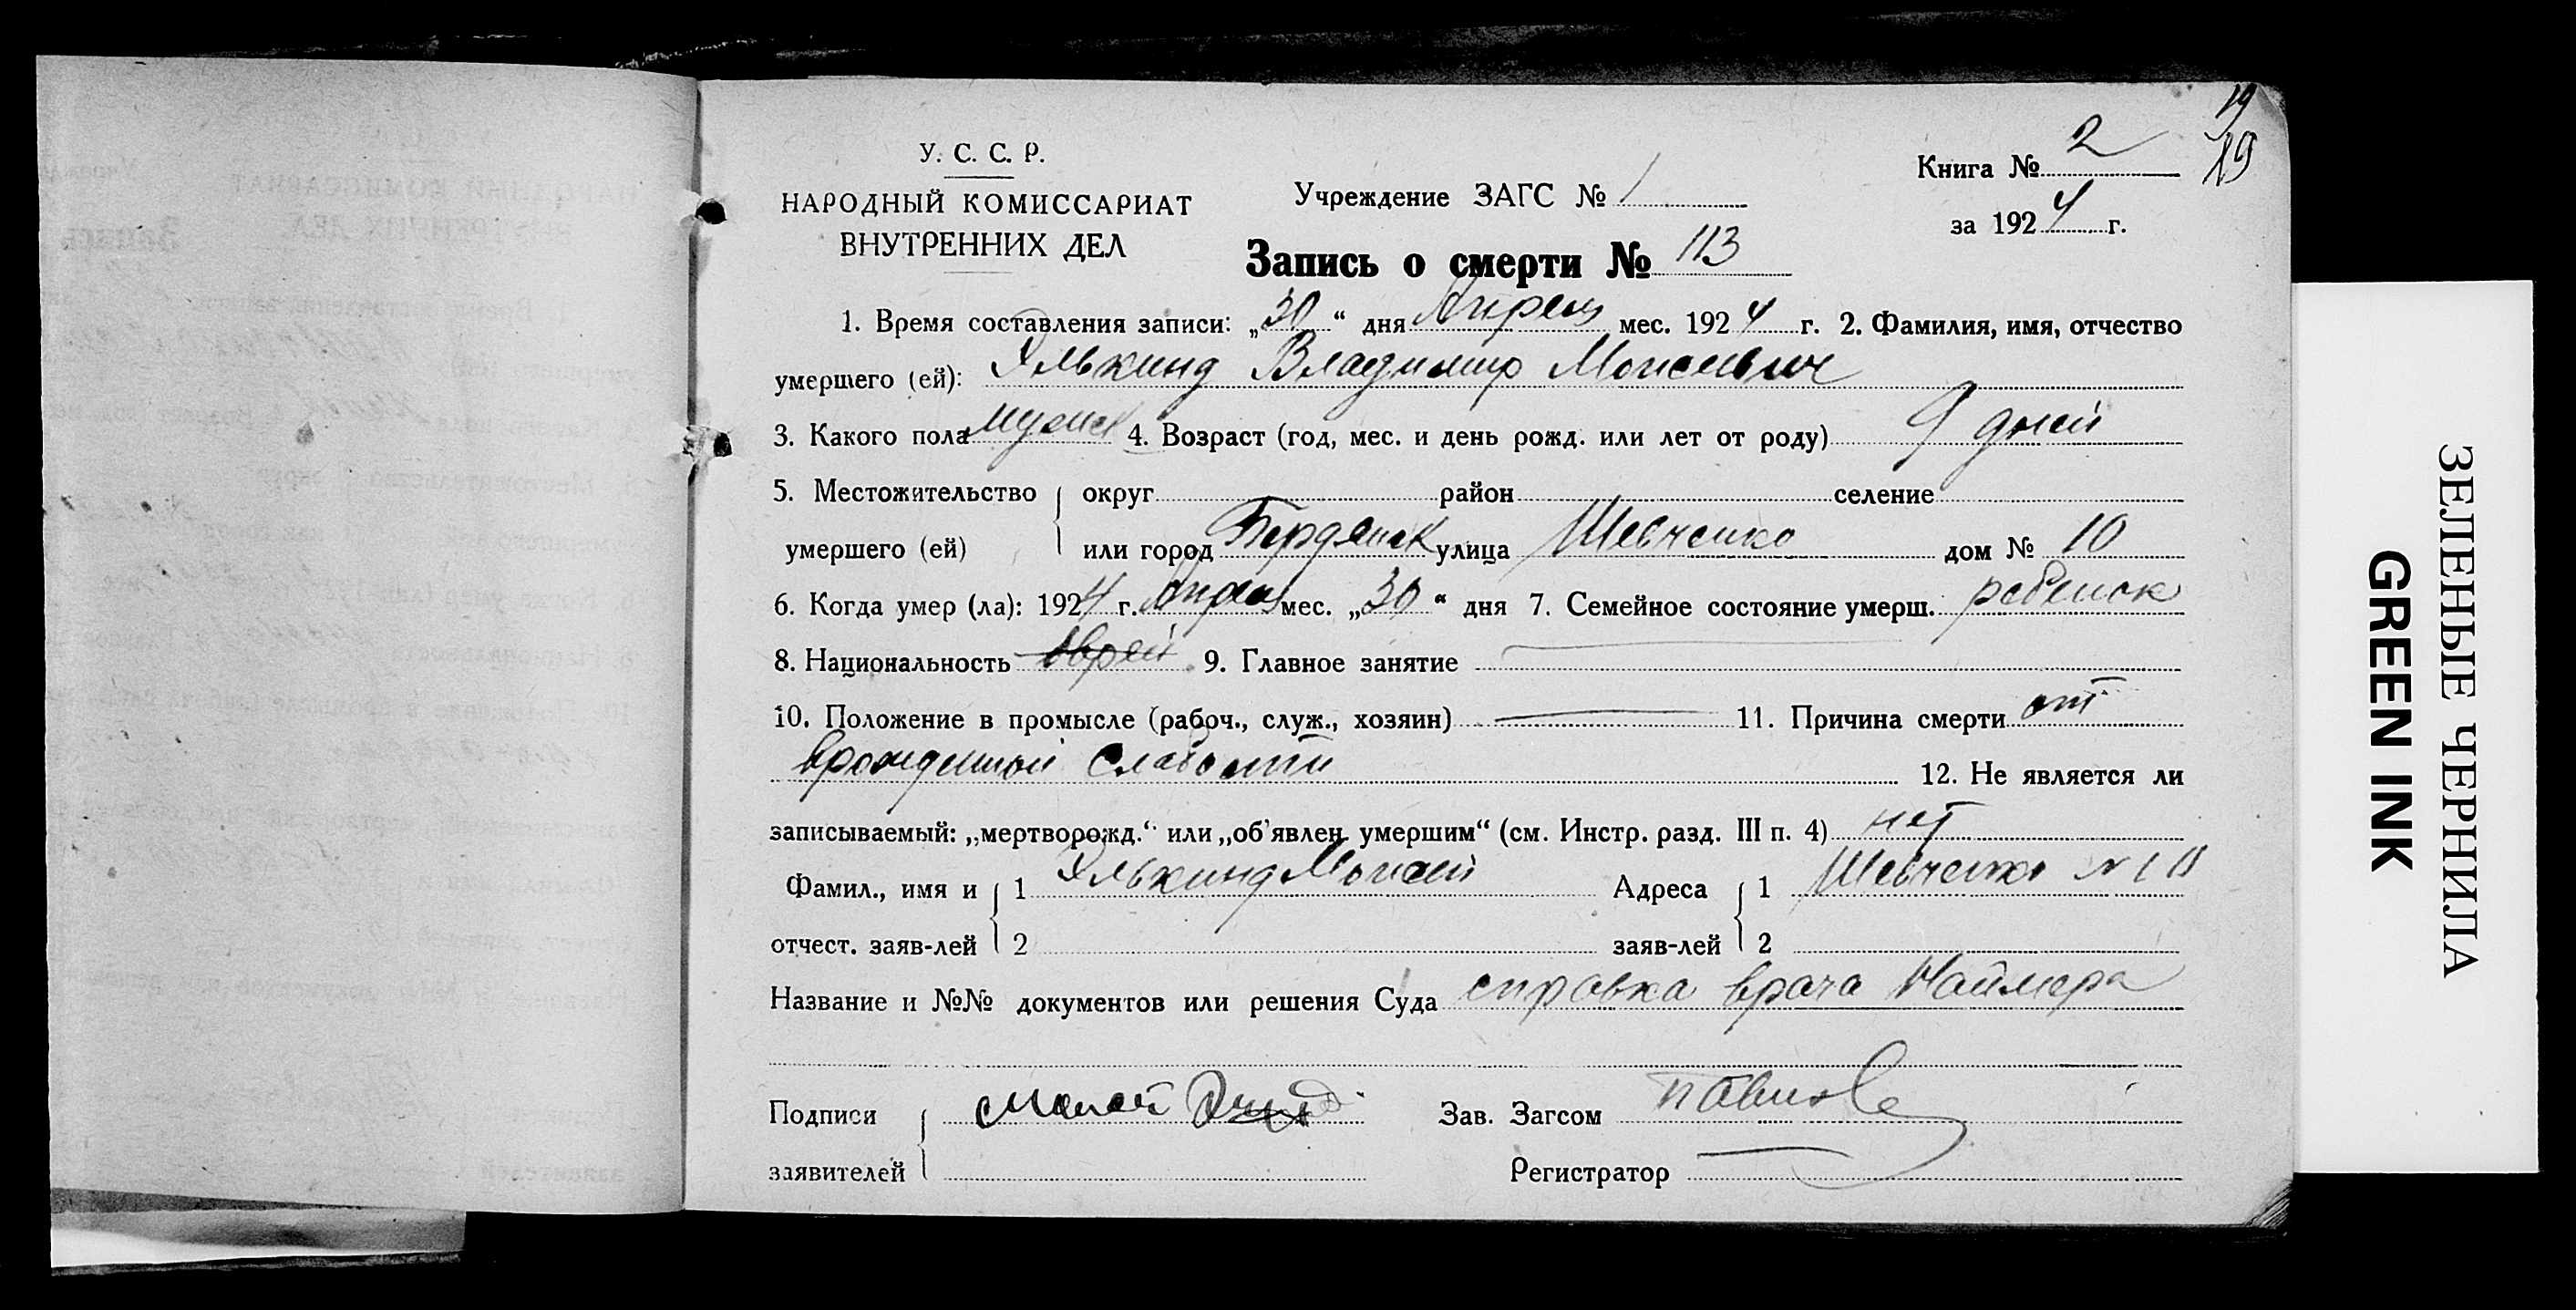 19
19
У. С. С. Р.
НАРОДНЫЙ КОМИССАРИАТ
ВНУТРЕННИХ ДЕЛ
Учреждение ЗАГС № 1
Книга № 2
за 1924 г.
Запись о смерти № 113
1. Время составления записи: „30“ дня Апреля мес. 1924 г. 2. Фамилия, имя, отчество
умершего (ей): Элькинд Владимир Моисеевич
3. Какого пола мужск 4. Возраст (год, мес. и день рожд. или лет от роду) 9 дней
5. Местожительство округ район селение
умершего (ей) или город Бердянск улица Шевченко дом № 10
6. Когда умер (ла): 1924 г. Апреля мес. „30“ дня 7. Семейное состояние умерш. ребенок
8. Национальность еврей 9. Главное занятие —
10. Положение в промысле (рабоч., служ., хозяин) — 11. Причина смерти от
врожденной слабости 12. Не является ли
записываемый: „мертворожд.“ или „об'явлен. умершим“ (см. Инстр. разд. III п. 4) нет
Фамил., имя и 1 Элькинд Моисей Адреса 1 Шевченко № 10
отчест. заяв-лей 2 заяв-лей 2
Название и №№ документов или решения Суда справка врача
Подписи Моисей Зав. Загсом
заявителей Регистратор
ЗЕЛЕНЫЕ ЧЕРНИЛА
GREEN INK